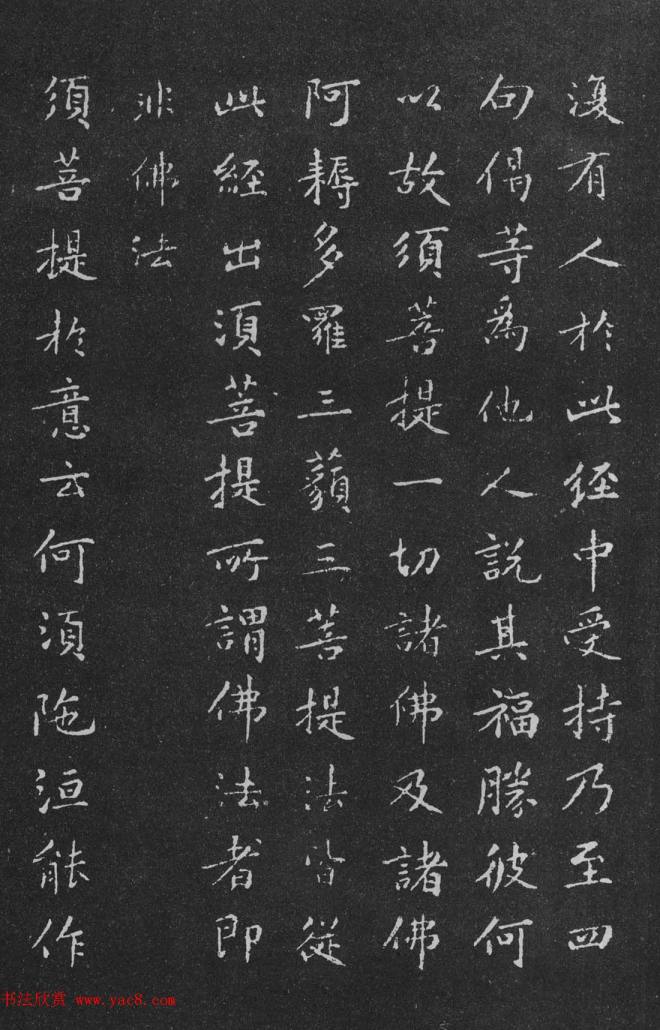 復有人於此經中受持乃至四
句偈等為他人說其福勝彼何
以故須菩提一切諸佛及諸佛
阿耨多羅三藐三菩提法皆從
此經出須菩提所謂佛法者即
非佛法
須菩提於意云何須陁洹能作
书法欣赏 www.yac8.com